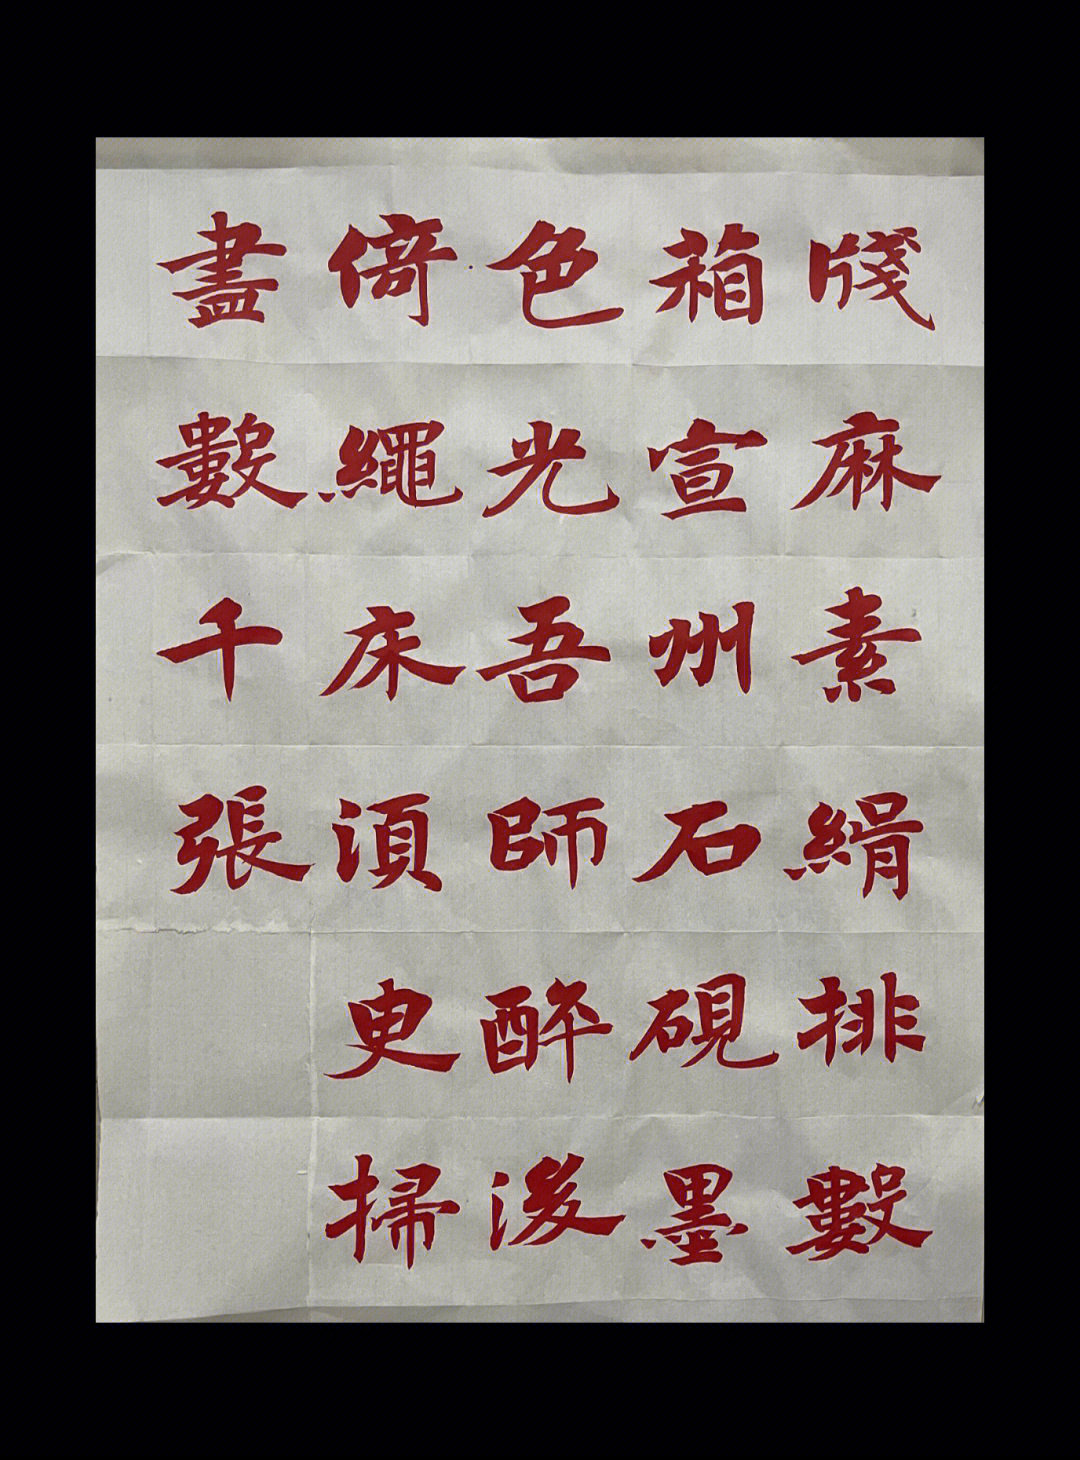 牋麻素絹排數
箱宣州石硯墨
色光吾師醉後
倚繩床須臾掃
盡數千張